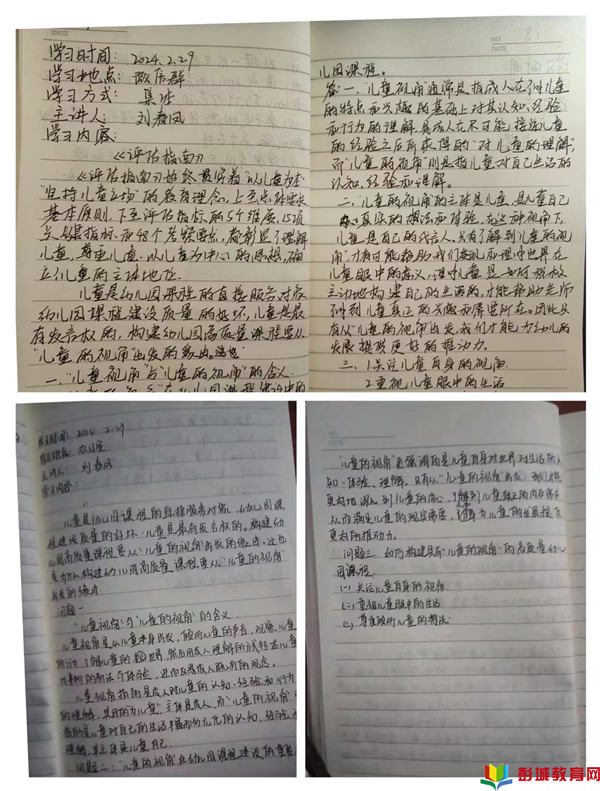 DATE
学习时间: 2024.2.29
学习地点: 微信群
学习方式: 集体
主讲人: 刘春凤
学习内容:
《评估指南》
《评估指南》始终贯穿着"以儿童为本"
"坚持儿童立场"的教育理念,上至总体要求
基本原则,下至评估指标的5个维度,15项
关键指标和48个考察要点,都彰显了理解
儿童、尊重儿童、以儿童为中心的思想,确
立了儿童的主体地位。
儿童是幼儿园课程的直接服务对象
幼儿园课程建设质量的好坏,儿童是最
有发言权的,构建幼儿园高质量课程要从
"儿童的视角"出发的
一、"儿童视角"与"儿童的视角"的含义
NO.
DATE
儿园课程。
一、"儿童视角"通常是指成人在对儿童
的特点和兴趣的基础上对其认知、经验
和行为的理解,是成人在不可能接近儿童
的经验之后所获得的"对儿童的理解",
而"儿童的视角"则是指儿童对自己生活的
认知、经验和理解。
二、"儿童的视角"的主体是儿童,是儿童自己
真实的想法和体验,在这种视角下,
儿童是自己的代言人,只有了解到"儿童的视
角"才有可能帮助我们走近和理解世界在
儿童眼中的意义,理解儿童是如何积极
主动地构建自己的生活的,才能帮助老师
得到儿童真正的兴趣和需要所在。因此只
有从"儿童的视角"出发,我们才能为幼儿的
发展提供更好的推动力。
三、1.关注儿童自身的视角
2.重视儿童眼中的生活
学习时间: 2024.2.29
学习地点: 办公室
主讲人: 刘春凤
学习内容:
儿童是幼儿园课程的直接服务对象,幼儿园课
程建设质量的好坏,儿童是最有发言权的。构建幼
儿园高质量课程要从"儿童的视角"出发的
构建幼儿园高质量课程要从"儿童的视角"
问题一
"儿童视角"与"儿童的视角"的含义
儿童视角是从儿童本身出发,倾听儿童的声音,观察儿童
儿童视角指的是成人对儿童的认知、经验和行为
的理解,其目的为儿童,主体是成人,而"儿童的视角"
指的是儿童对自己的生活
理解,其主体是儿童自己
问题二:"儿童的视角"在幼儿园课程建设的重要
"儿童的视角"更强调的是儿童自身对世界、对生活的认
知、体验、理解。只有从"儿童的视角"出发,我们才能
更为地深入到儿童的内心,了解到儿童真正的内在需求
从而满足儿童的现实需要,为儿童的发展提供
更为有的推动力。
问题三、如何构建具有"儿童的视角"的高质量幼儿
园课程
(一)关注儿童自身的视角
(二)重视儿童眼中的生活
(三)尊重倾听儿童的想法
彭城教育网